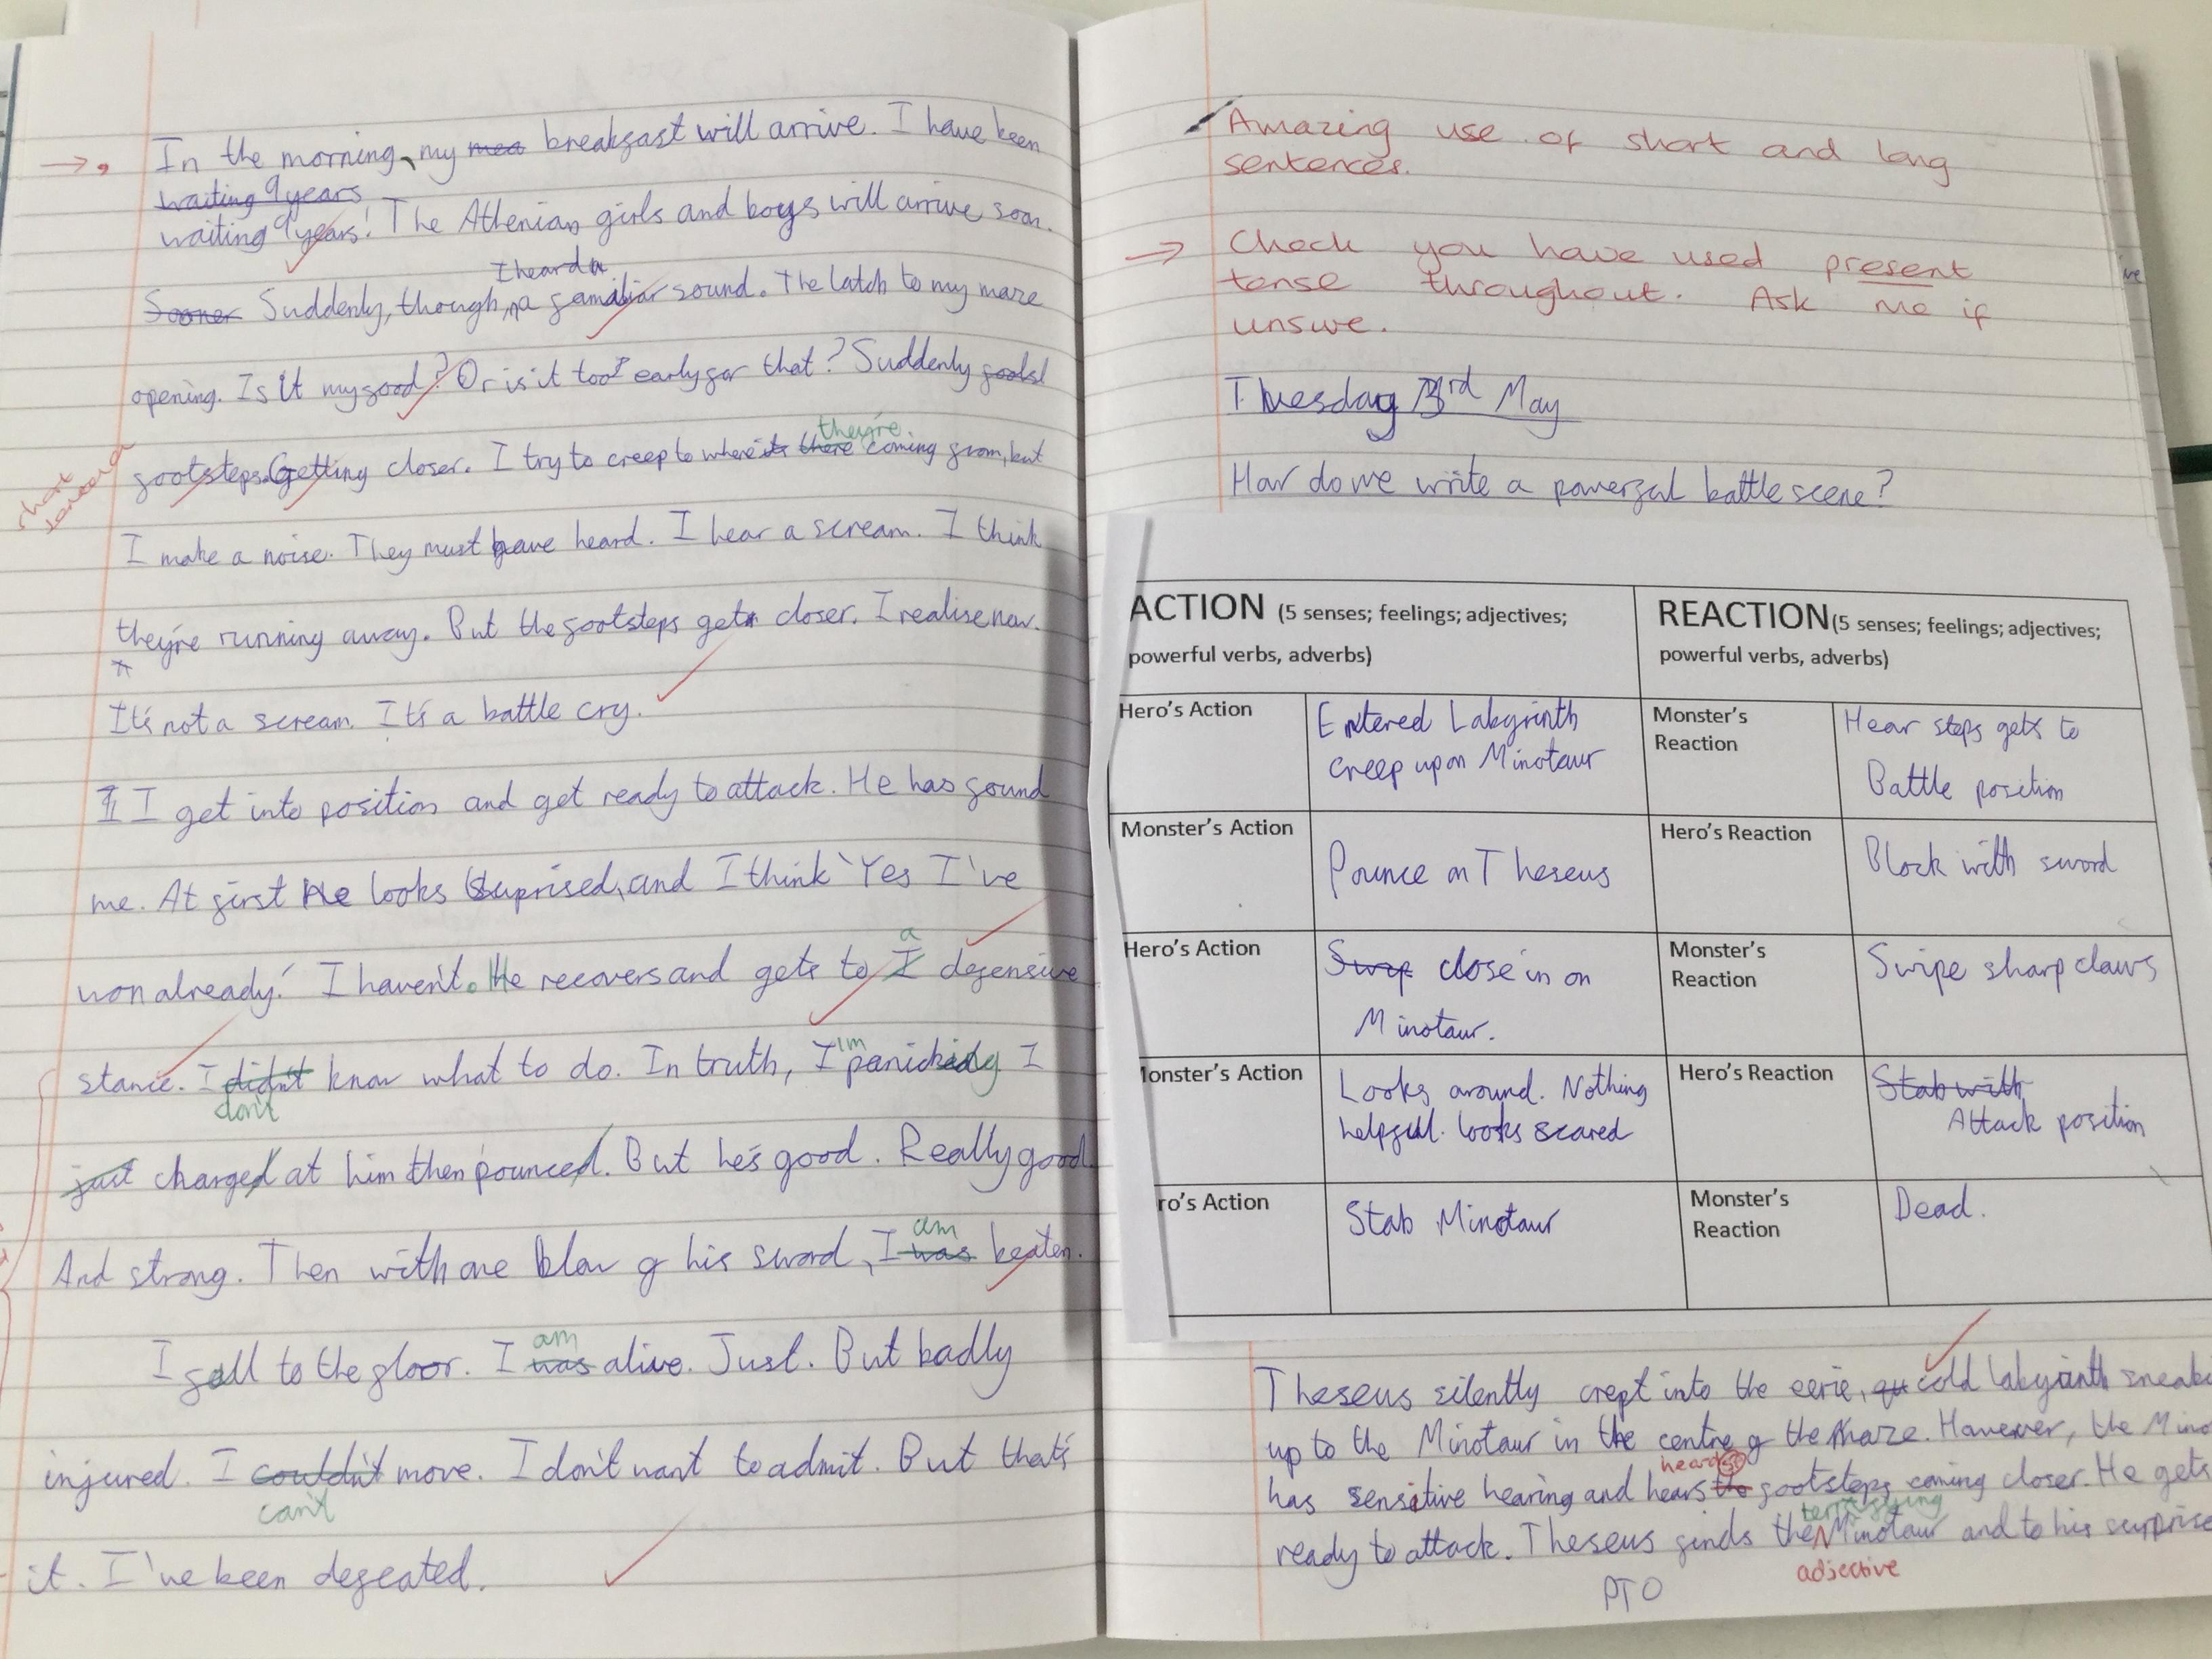 In the morning, my mea breakfast will arrive. I have been
waiting 9 years
waiting 9 years! The Athenian girls and boys will arrive soon.
I heard a
Sooner Suddenly, though, a familiar sound. The latch to my maze
opening. Is it my food? Or is it too early for that? Suddenly
they're
footsteps. Getting closer. I try to creep to where there coming from, but
short sentence
I make a noise. They must have heard. I hear a scream. I think
they're running away. But the footsteps get closer. I realise now.
It's not a scream. It's a battle cry.
I get into position and get ready to attack. He has found
me. At first He looks suprised, and I think 'Yes I've
a
won already!' I haven't. He recovers and gets to I defensive
im
stance. I didn't know what to do. In truth, I panicking I
don't
just charged at him then pounced. But he's good. Really good.
am
And strong. Then with one blow of his sword, I was beaten.
am
I fall to the floor. I was alive. Just. But badly
injured. I couldn't move. I don't want to admit. But that's
can't
it. I've been defeated.
Amazing use of short and long
sentences.
→ Check you have used present
tense throughout. Ask me if
unsure.
Tuesday 3rd May
How do we write a powerful battle scene?
ACTION (5 senses; feelings; adjectives;
powerful verbs, adverbs)
REACTION(5 senses; feelings; adjectives;
powerful verbs, adverbs)
Hero's Action
Entered Labyrinth
creep up on Minotaur
Monster's
Reaction
Hear steps gets to
Battle position
Monster's Action
Pounce on Theseus
Hero's Reaction
Block with sword
Hero's Action
Swop close in on
Minotaur.
Monster's
Reaction
Swipe sharp claws
onster's Action
Looks around. Nothing
helpful. looks scared
Hero's Reaction
Stab with
Attack position
ro's Action
Stab Minotaur
Monster's
Reaction
Dead.
Theseus silently crept into the eerie, cold labyrinth sneaki
up to the Minotaur in the centre of the maze. However, the Mino
heard
has sensitive hearing and hears the footsteps coming closer. He gets
terrifying
ready to attack. Theseus finds the Minotaur and to his surprise
adjective
PTO